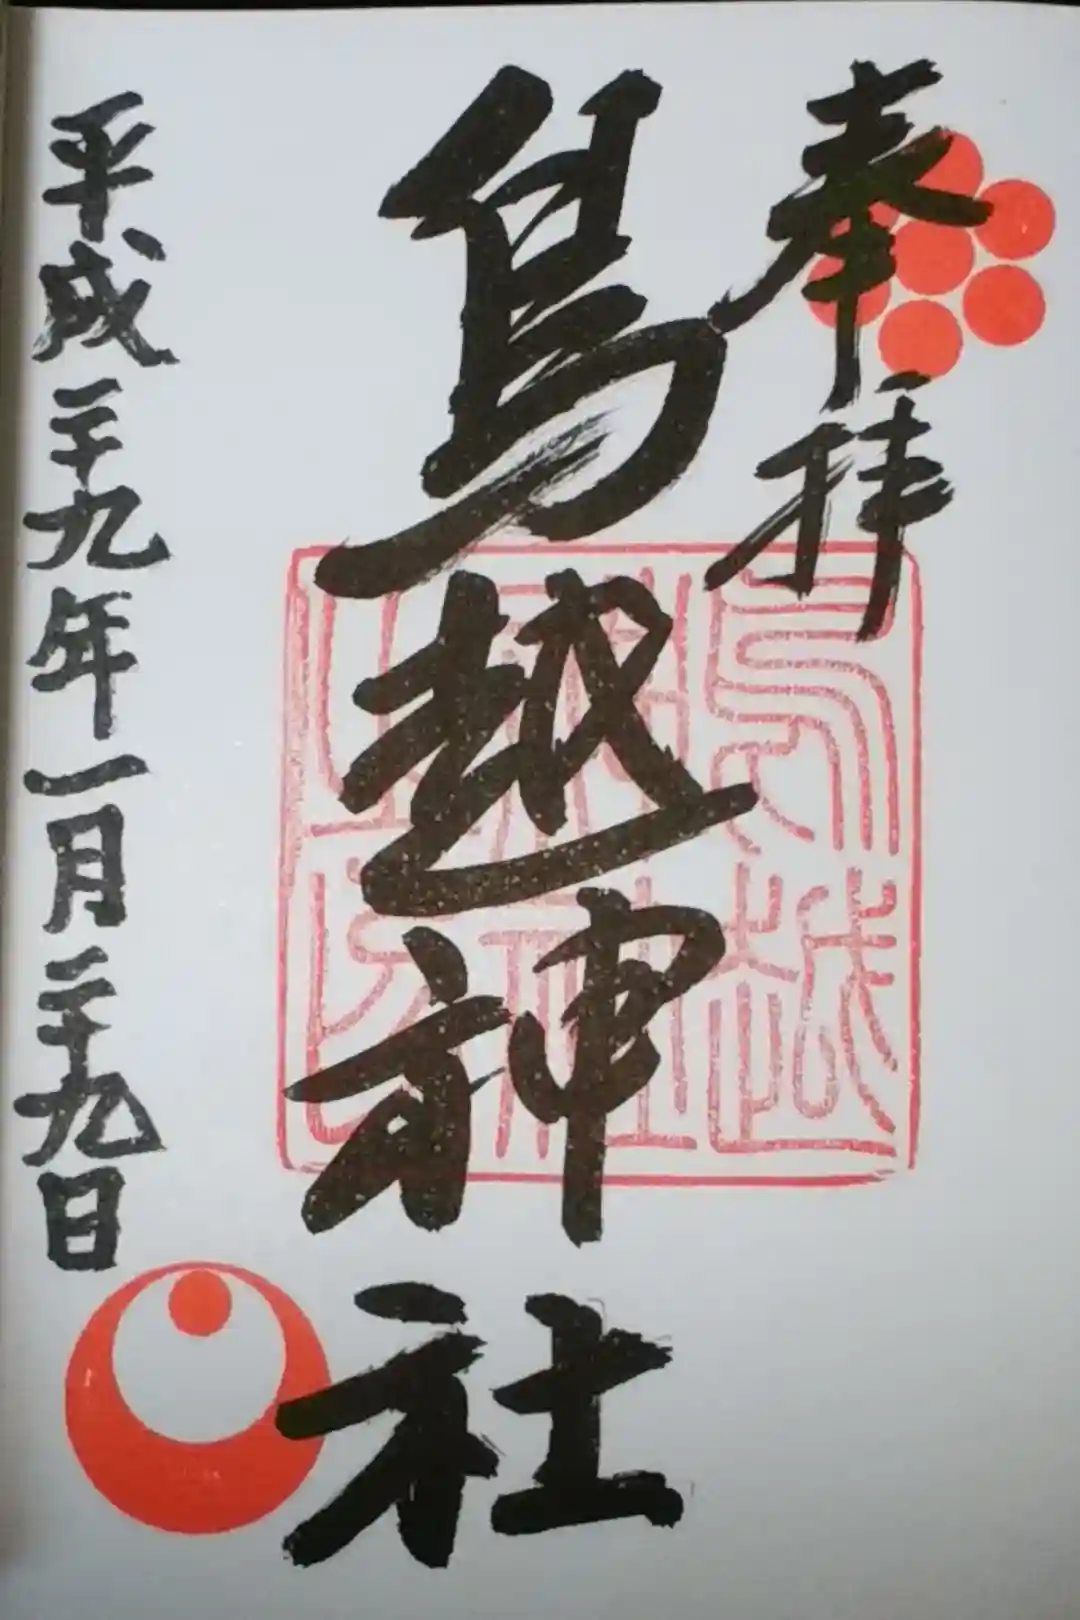 奉拝
鳥越神社
平成二十九年一月二十九日
鳥越
神社
之印